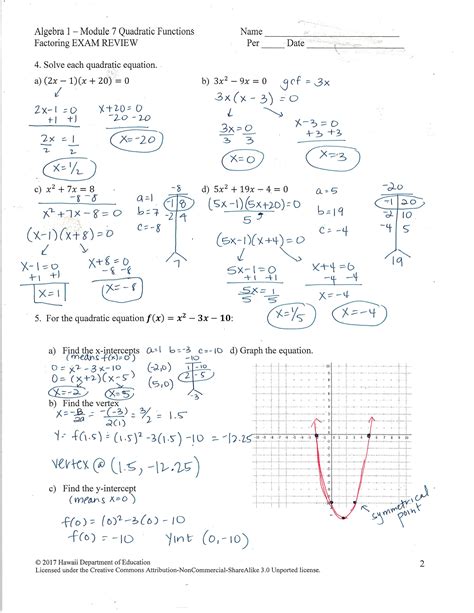 Algebra 1 – Module 7 Quadratic Functions
Name
Factoring EXAM REVIEW
Per Date
4. Solve each quadratic equation.
a) (2x − 1)(x + 20) = 0
2x-1=0 x+20=0
+1 +1 -20 -20
2x = 1 x=-20
2 2
x=1/2
b) 3x² − 9x = 0 gcf = 3x
3x(x-3)=0
3x=0 x-3=0
3 3 +3 +3
x=0 x=3
c) x² + 7x = 8
-8 -8
x²+7x-8=0
(x-1)(x+8)=0
x-1=0 x+8=0
+1 +1 -8 -8
x=1 x=-8
a=1
b=7
c=-8
-8
-1 8
-2 4
7
d) 5x² + 19x − 4 = 0
(5x-1)(5x+20)=0
5
(5x-1)(x+4)=0
5x-1=0 x+4=0
+1 +1 -4 -4
5x=1 x=-4
5 5
x=1/5
a=5
b=19
c=-4
-20
-1 20
-2 10
-4 5
19
5. For the quadratic equation f(x) = x² − 3x − 10:
a) Find the x-intercepts a=1 b=-3 c=-10
(means f(x)=0)
0 = x²-3x-10 (-2,0)
0 = (x+2)(x-5) (5,0)
x=-2 x=5
-10
1 -10
2 -5
-3
b) Find the vertex
x = -b/2a = -(-3)/2(1) = 3/2 = 1.5
y = f(1.5) = (1.5)²-3(1.5)-10 = -12.25
vertex @ (1.5, -12.25)
c) Find the y-intercept
(means x=0)
f(0) = (0)²-3(0)-10
f(0) = -10 yint (0,-10)
d) Graph the equation.
symmetrical
point
© 2017 Hawaii Department of Education
2
Licensed under the Creative Commons Attribution-NonCommercial-ShareAlike 3.0 Unported license.